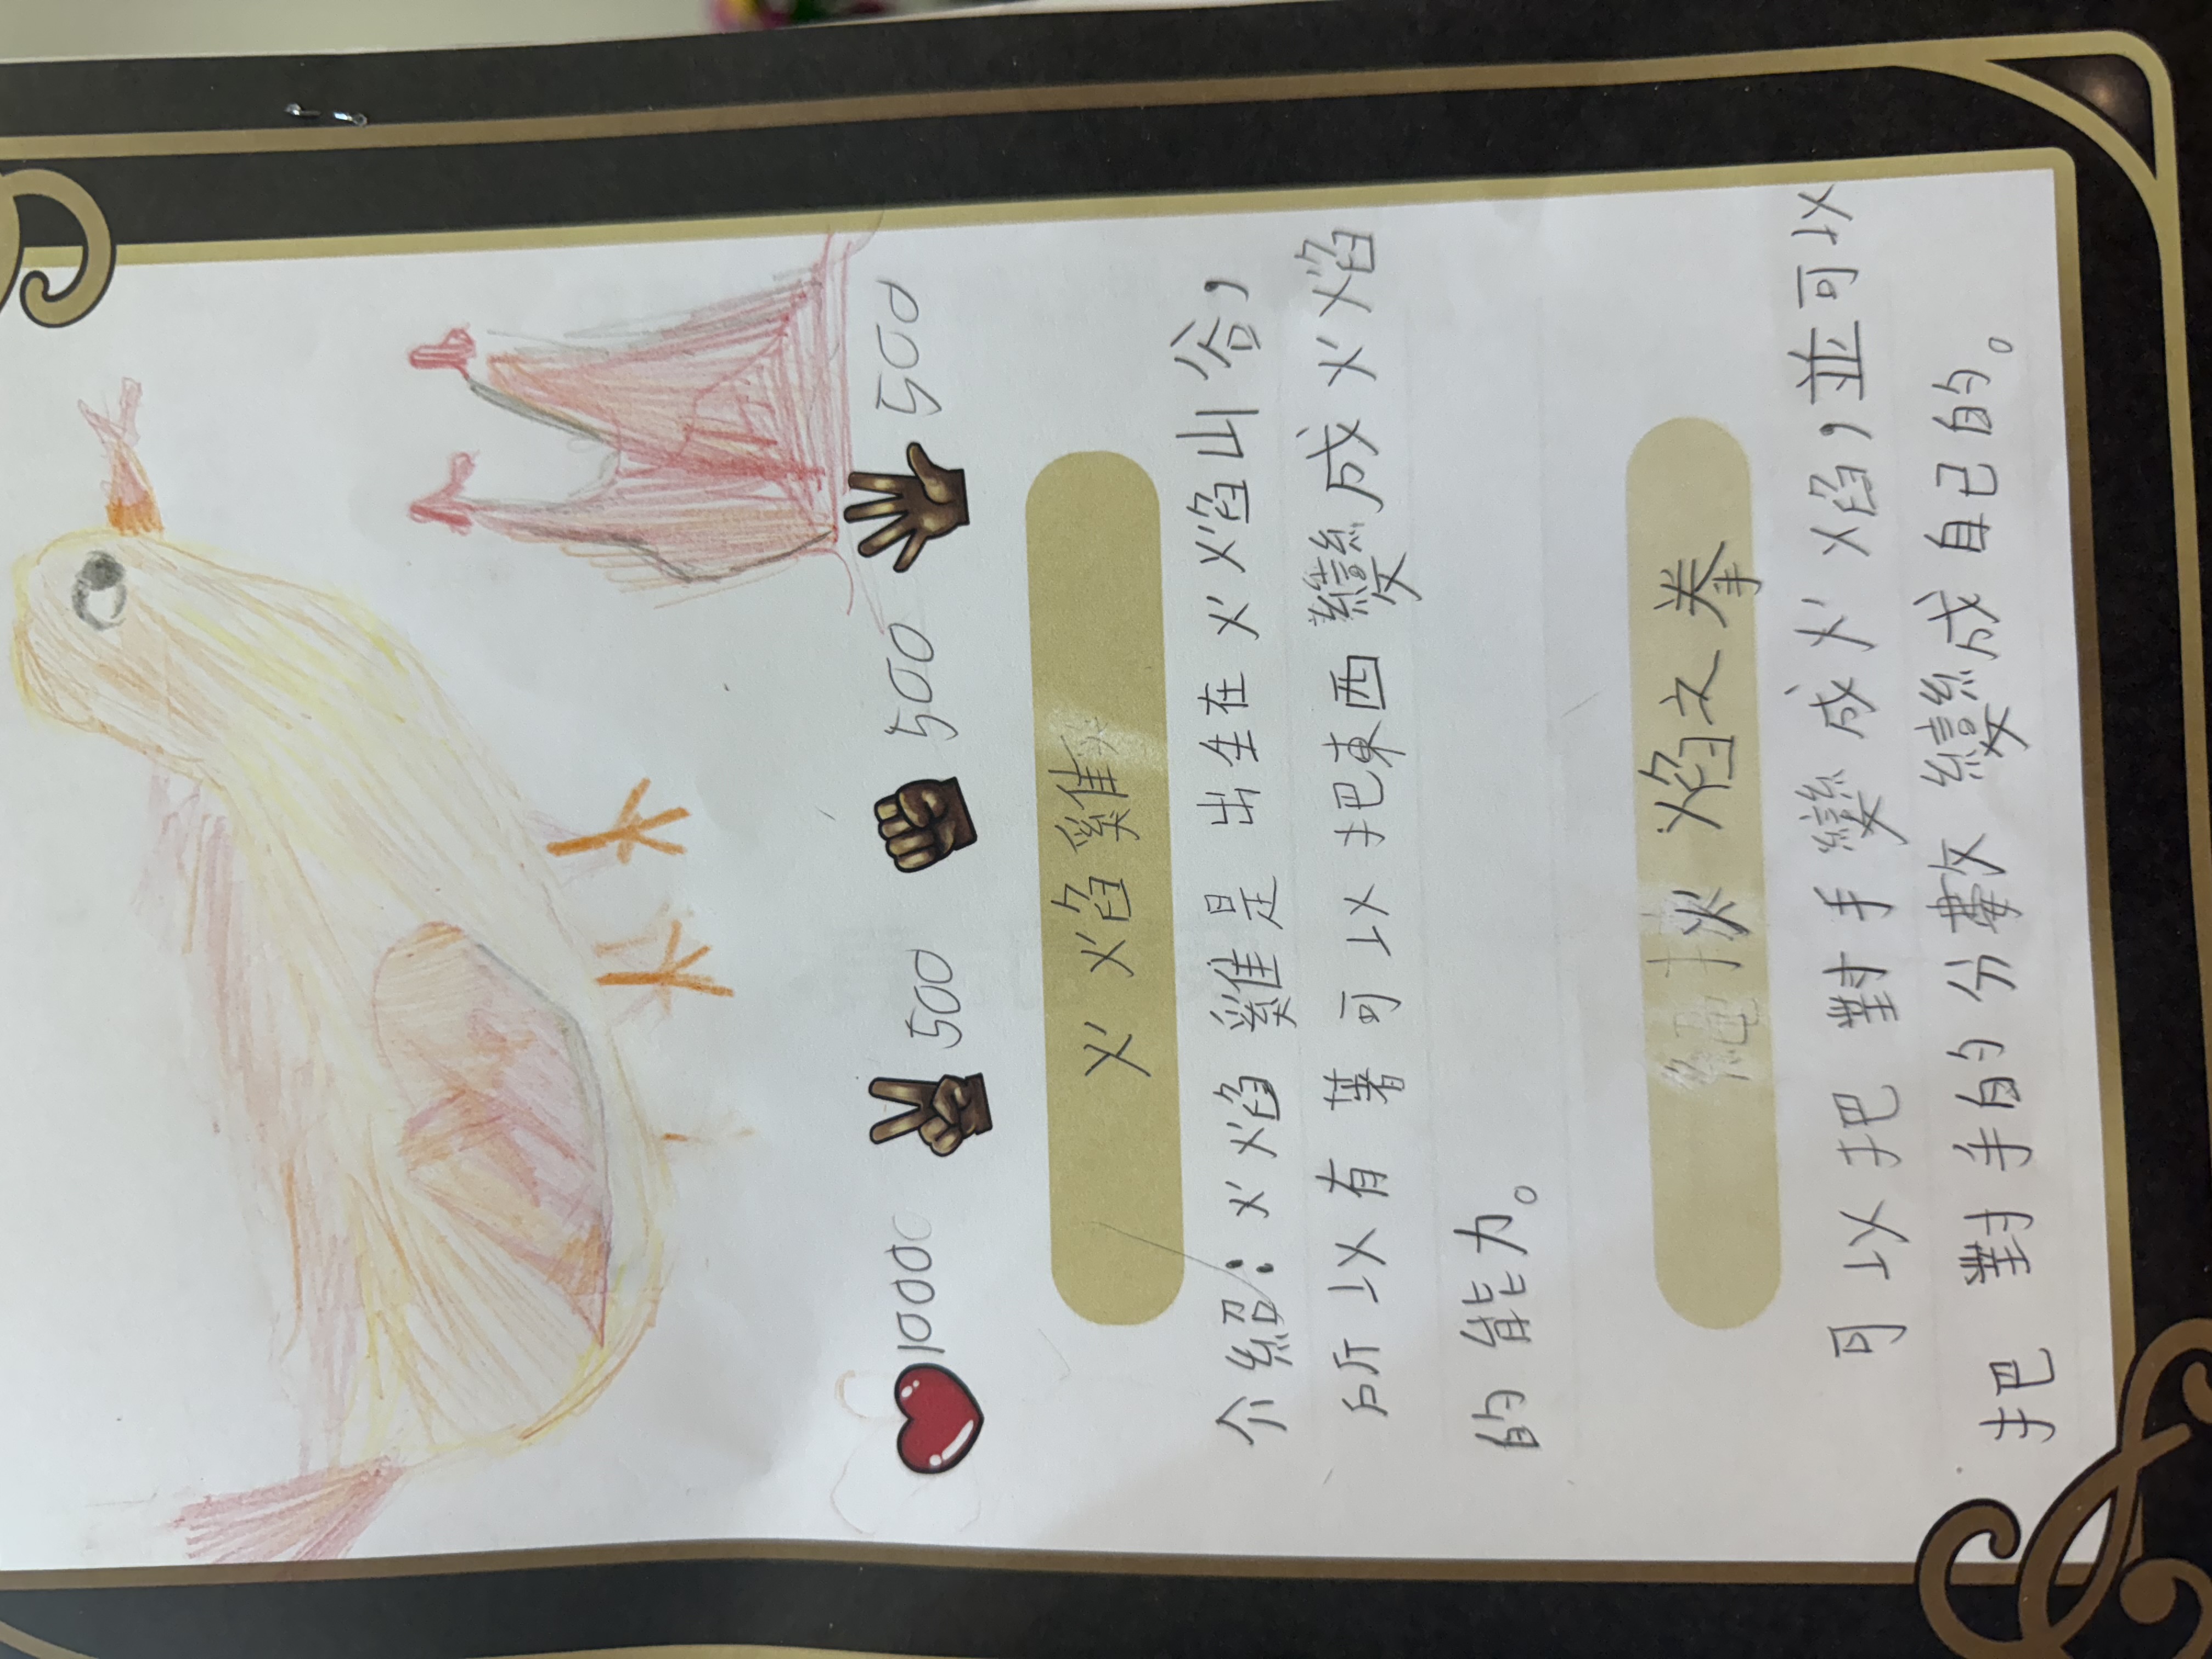 10000 500 500 500
火焰雞
介紹：火焰雞是出生在火焰山谷，
所以有著可以把東西變成火焰
的能力。
火焰之拳
可以把對手變成火焰，並可以
把對手的分數變成自己的。